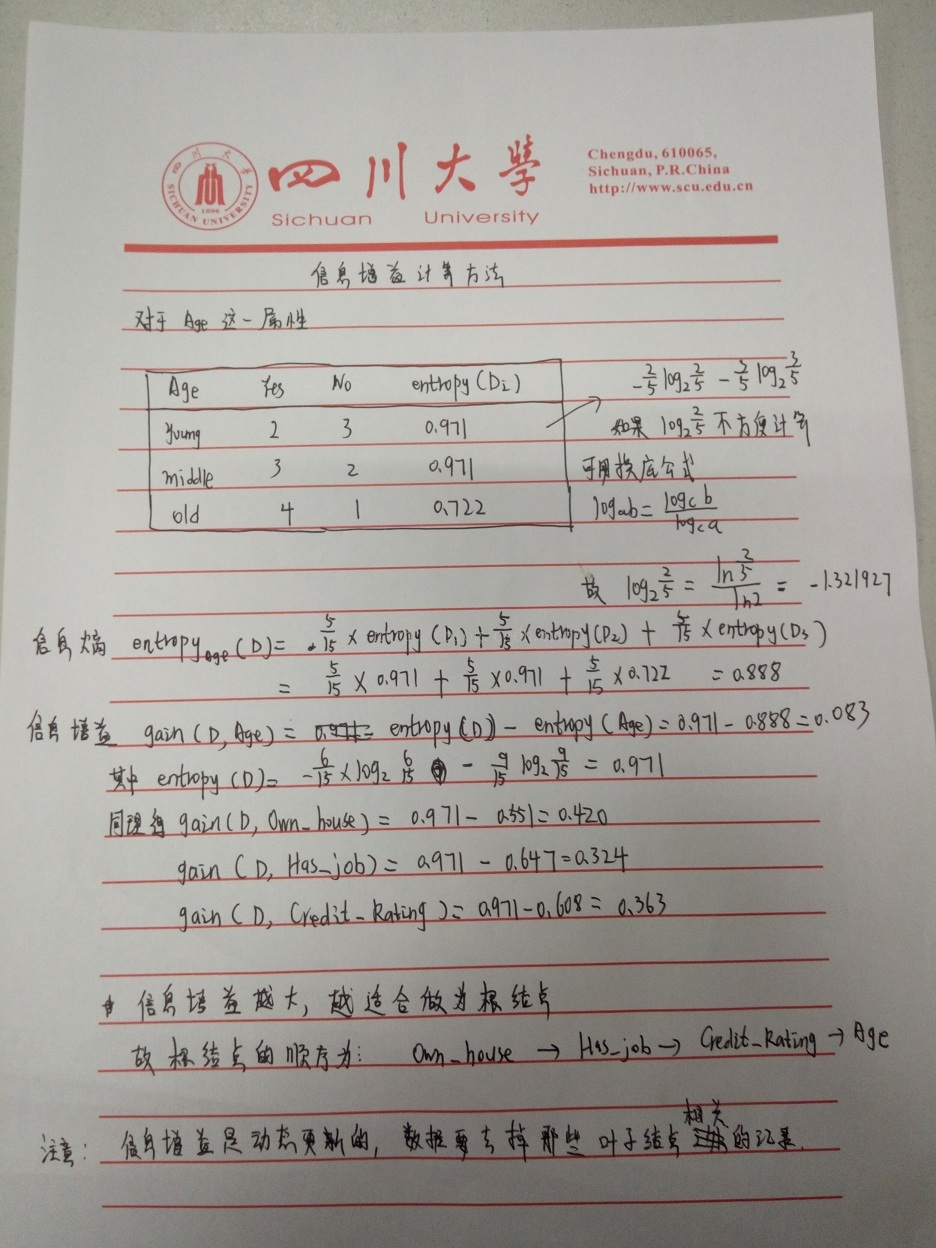 四川大学
SICHUAN UNIVERSITY
1896
四川大学
Sichuan University
Chengdu, 610065,
Sichuan, P.R.China
http://www.scu.edu.cn
信息增益计算方法
对于 Age 这一属性
Age Yes No entropy(Di)
young 2 3 0.971
middle 3 2 0.971
old 4 1 0.722
-2/5 log₂ 2/5 - 3/5 log₂ 3/5
如果 log₂ 2/5 不方便计算
可用换底公式
logab = logcb / logca
故 log₂ 2/5 = ln 2/5 / ln2 = -1.321927
信息熵 entropyage(D) = 5/15 × entropy(D₁) + 5/15 × entropy(D₂) + 5/15 × entropy(D₃)
= 5/15 × 0.971 + 5/15 × 0.971 + 5/15 × 0.722 = 0.888
信息增益 gain(D, Age) = entropy(D) - entropy(Age) = 0.971 - 0.888 = 0.083
其中 entropy(D) = -6/15 × log₂ 6/15 - 9/15 log₂ 9/15 = 0.971
同理得 gain(D, Own_house) = 0.971 - 0.551 = 0.420
gain(D, Has_job) = 0.971 - 0.647 = 0.324
gain(D, Credit_Rating) = 0.971 - 0.608 = 0.363
信息增益越大, 越适合做为根结点
故根结点的顺序为: Own_house → Has_job → Credit_Rating → Age
注意: 信息增益是动态更新的, 数据要去掉那些叶子结点相关的记录.